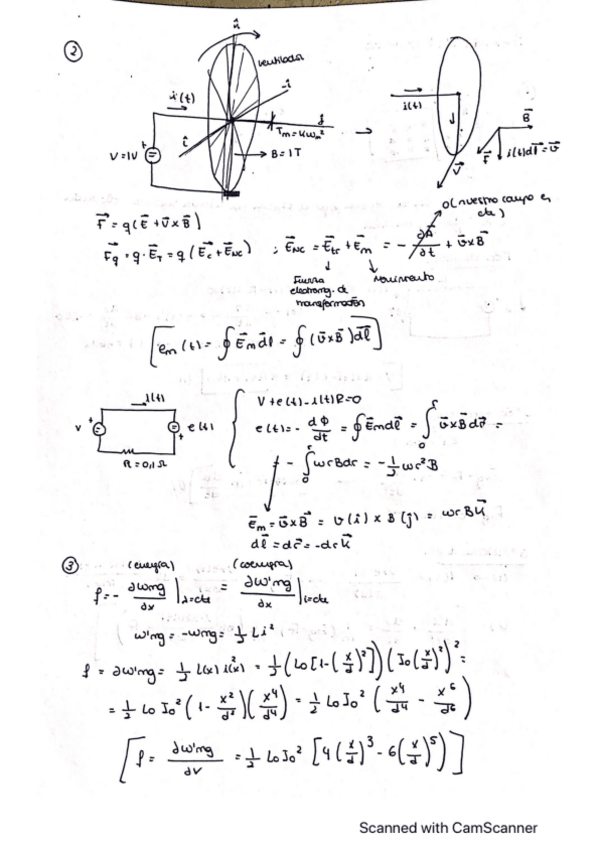 ②
n̂
ventilador
i(t)
-î
ĵ
Tm = k ωm²
V=1V
+
î
B = 1T
→
i(t)
B⃗
F⃗
i(t)dl⃗ = v⃗
V⃗
F⃗ = q(E⃗ + v⃗ x B⃗)
0 (nuestro campo es cte)
F⃗q = q·E⃗T = q(E⃗c + E⃗NC) ; E⃗NC = E⃗tr + E⃗m = - ∂A⃗/∂t + v⃗xB⃗
Fuerza electromg. de transformación
Movimiento
[em(t) = ∮ E⃗m dl⃗ = ∮ (v⃗xB⃗) dl⃗]
i(t)
V
+
e(t)
+
R = 0,1 Ω
V + e(t) - i(t)R = 0
e(t) = - dΦ/dt = ∮ E⃗m dl⃗ = ∫₀ʳ v⃗xB⃗ dr⃗ =
= - ∫₀ʳ ωrB dr = - 1/2 ωr²B
E⃗m = v⃗xB⃗ = v(î) x B(ĵ) = ωrB k⃗
dl⃗ = dr⃗ = -dr k⃗
③
(energía)
(coenergía)
f = - ∂Wmg/∂x |λ=cte = ∂W'mg/∂x |i=cte
W'mg = -Wmg = 1/2 L i²
f = ∂W'mg = 1/2 L(x) i²(x) = 1/2 (L0 [1-(x/d)²]) (I0 (x/d)²)² =
= 1/2 L0 I0² (1 - x²/d²)(x⁴/d⁴) = 1/2 L0 I0² (x⁴/d⁴ - x⁶/d⁶)
[f = ∂W'mg/∂x = 1/2 L0 I0² [4(x/d)³ - 6(x/d)⁵]]
Scanned with CamScanner